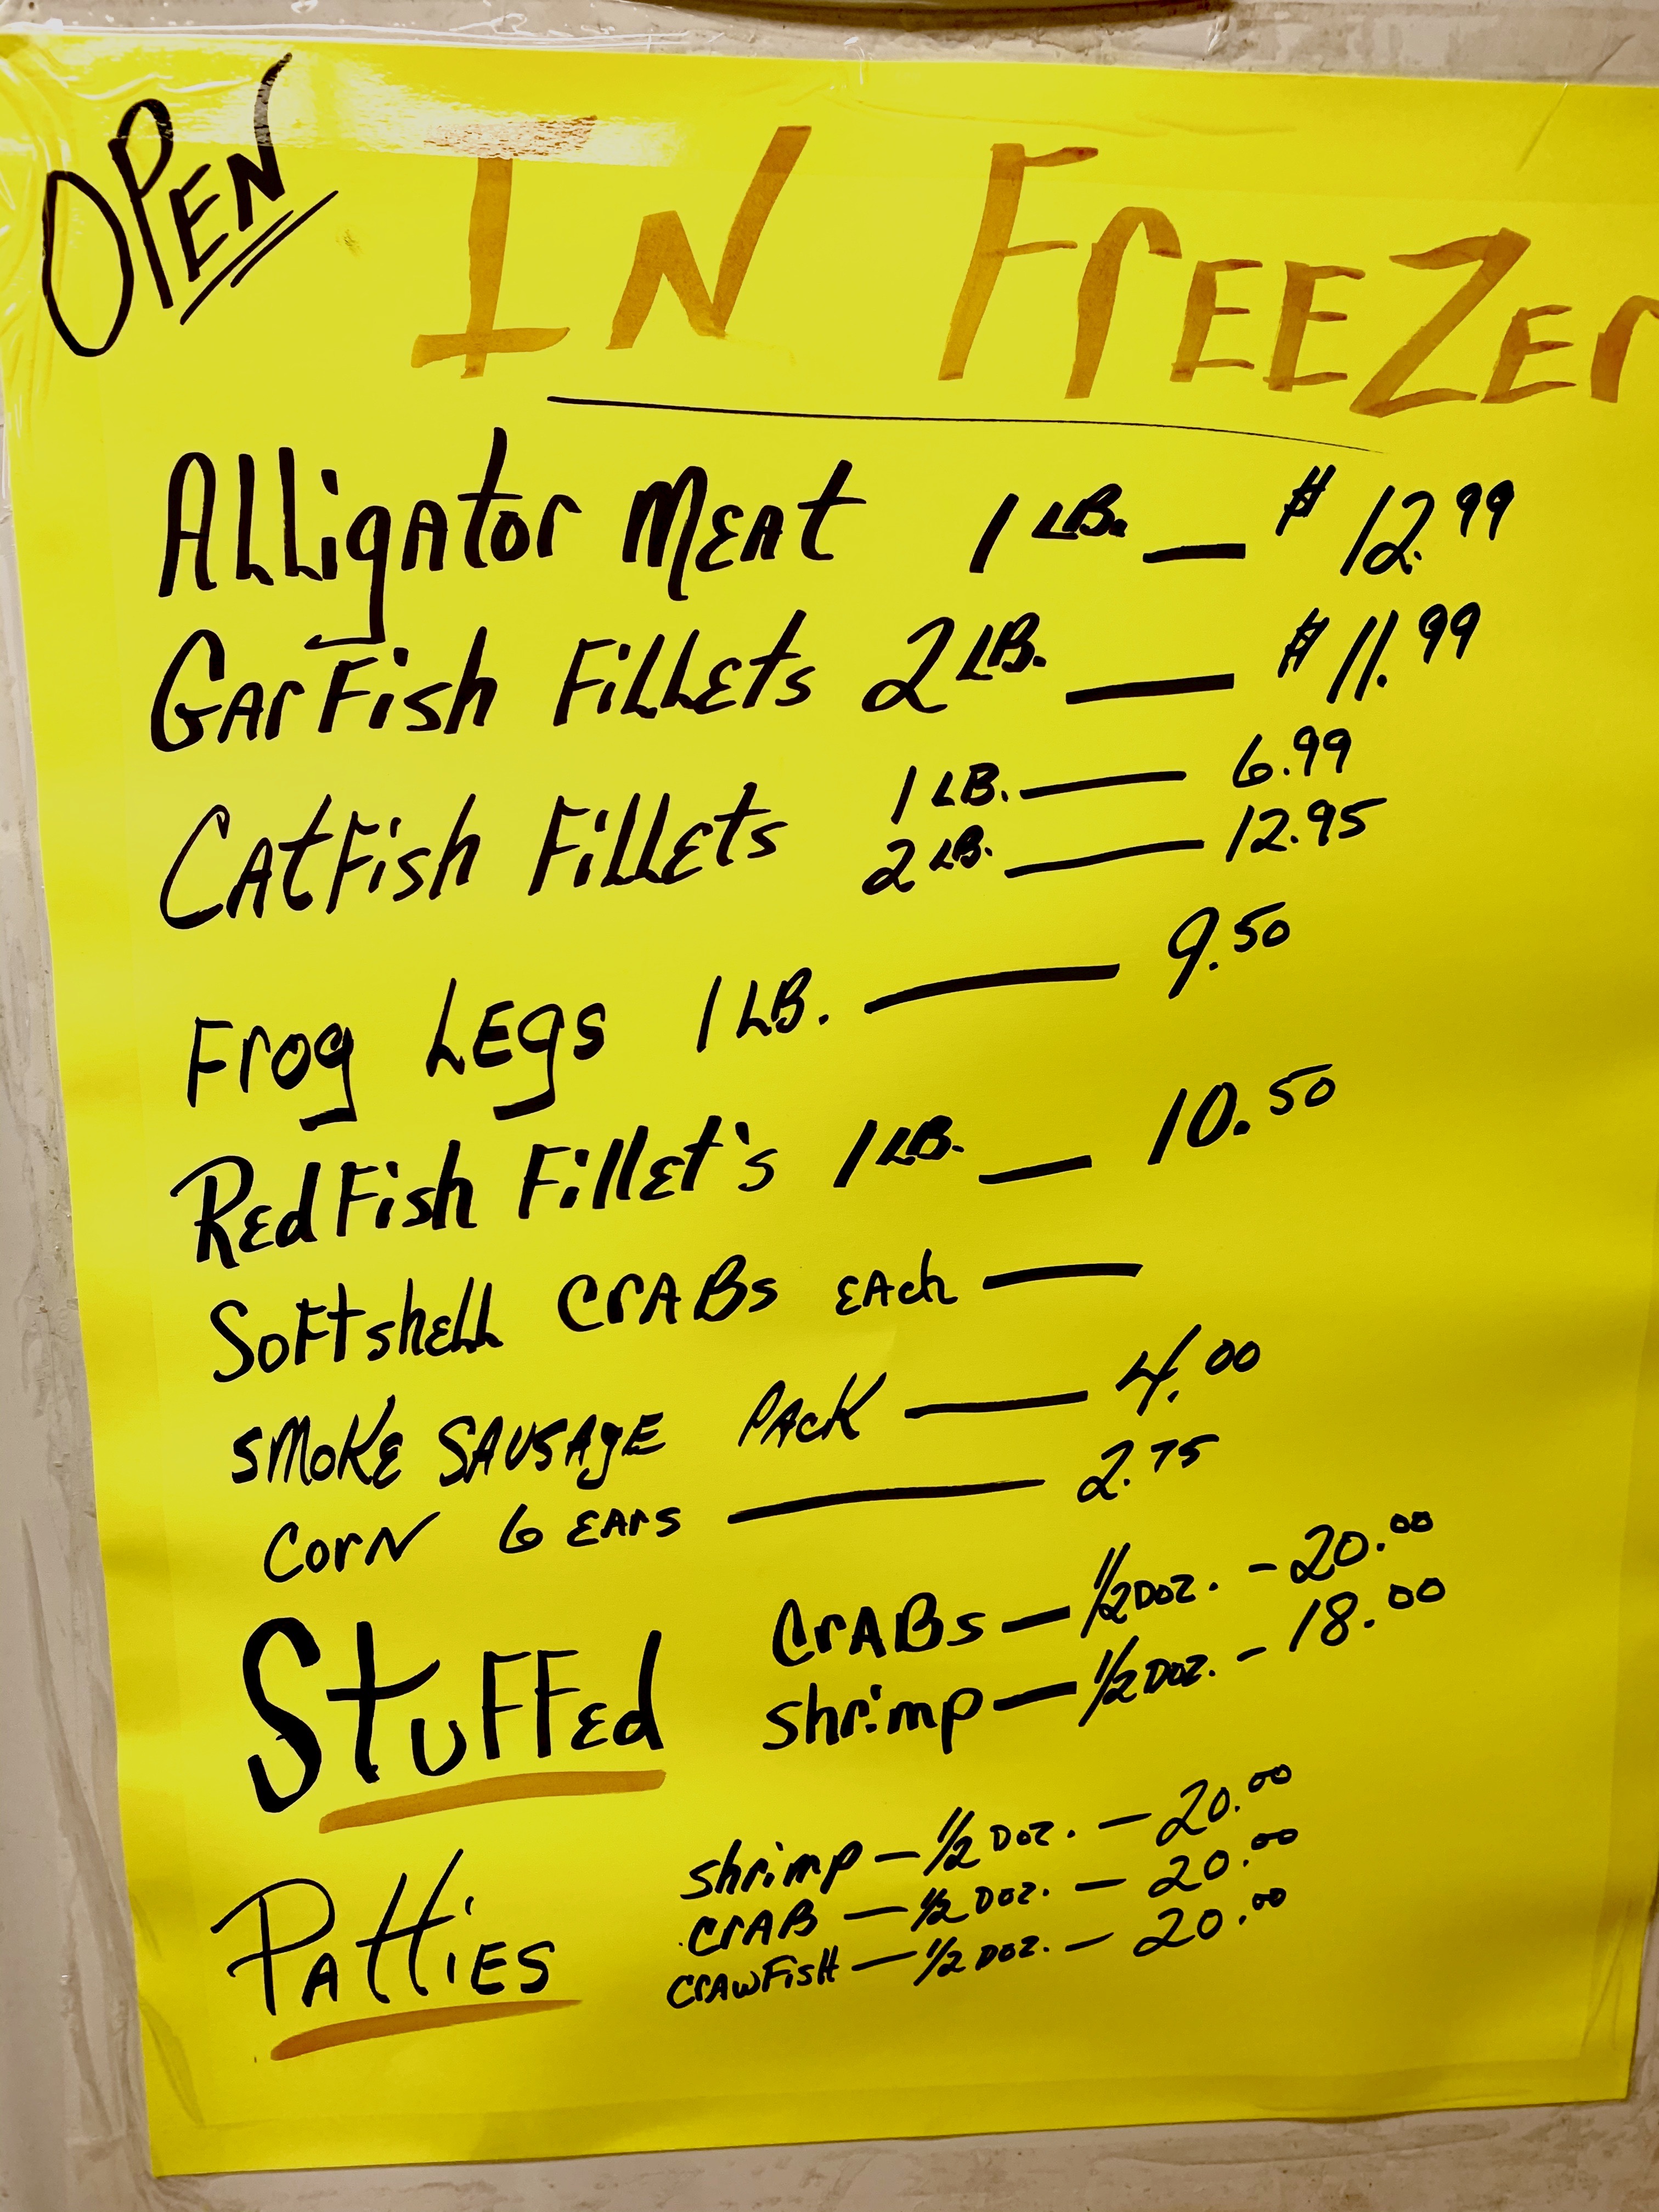 OPEN
IN FreeZer
Alligator Meat 1 LB. — $12.99
Garfish Fillets 2 LB. — $11.99
Catfish Fillets 1 LB. — 6.99
2 LB. — 12.95
Frog Legs 1 LB. — 9.50
Redfish Fillet's 1 LB. — 10.50
Softshell Crabs each —
Smoke Sausage Pack — 4.00
Corn 6 ears — 2.75
Stuffed Crabs — 1/2 Doz. - 20.00
shrimp — 1/2 Doz. - 18.00
Patties shrimp — 1/2 Doz. — 20.00
Crab — 1/2 Doz. — 20.00
Crawfish — 1/2 Doz. — 20.00